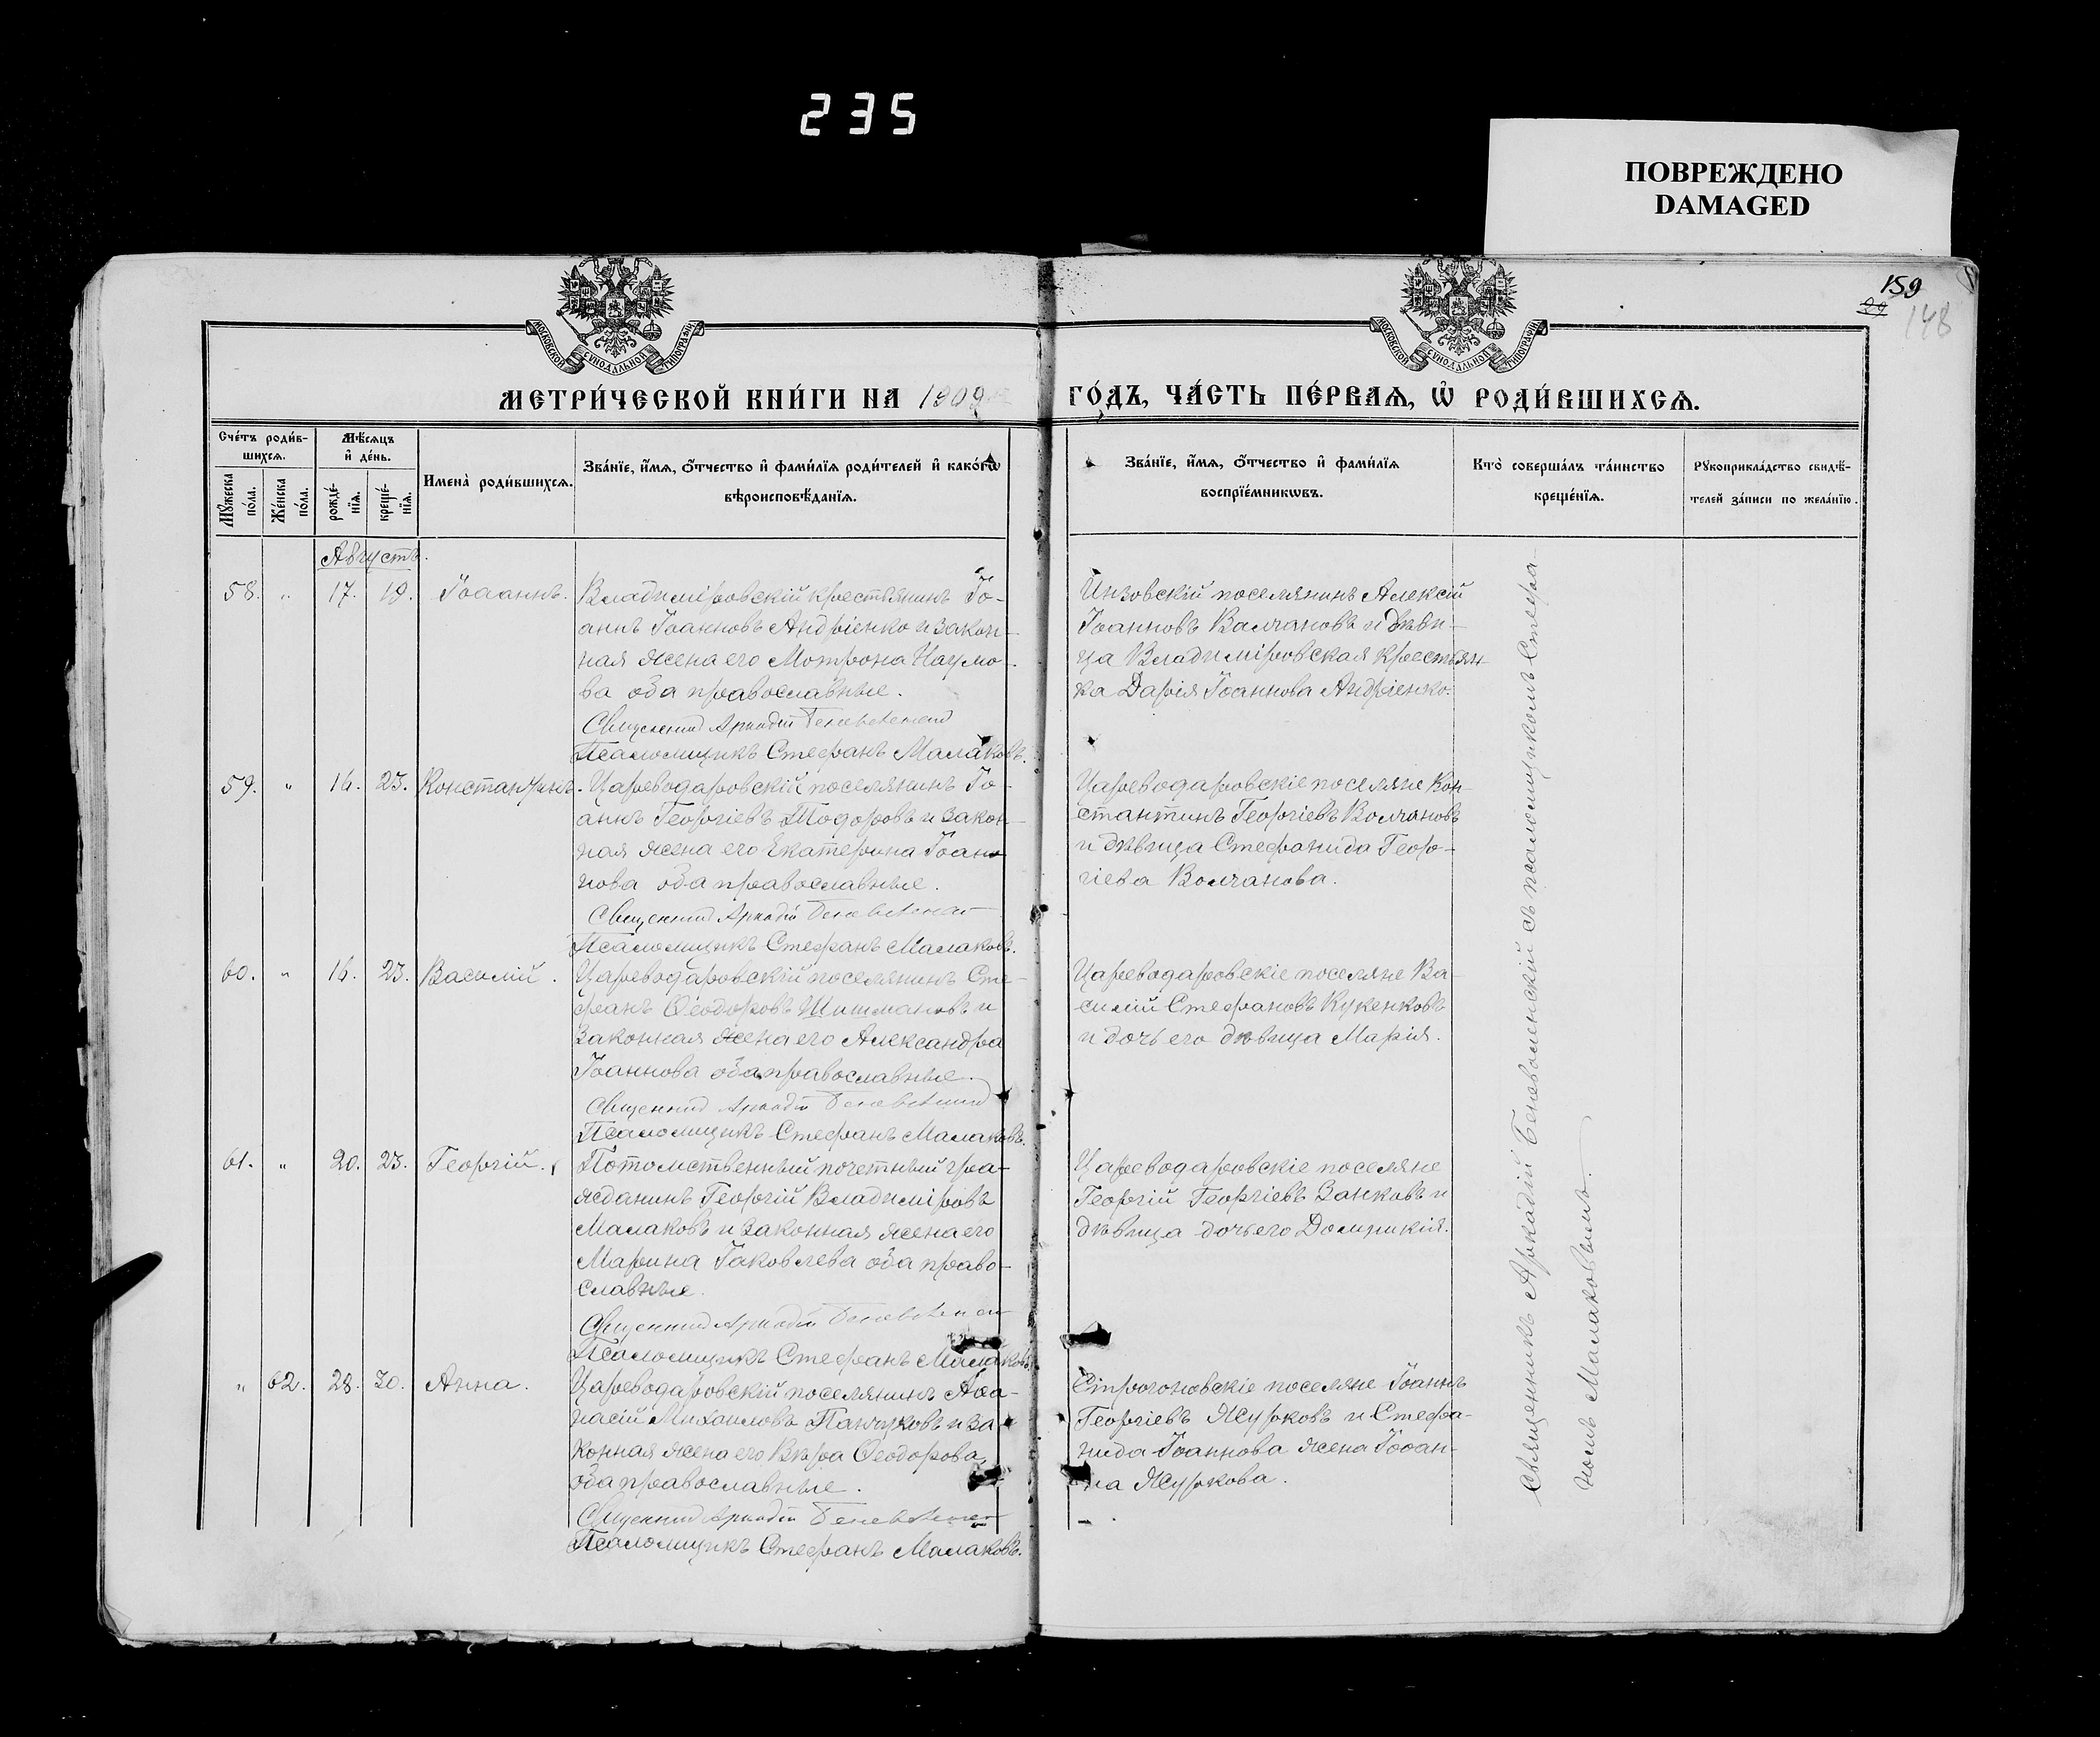 235
ПОВРЕЖДЕНО
DAMAGED
159
29
148
МОСКОВСКОЙ СУНОДАЛЬНОЙ ТИПОГРАФІИ
МОСКОВСКОЙ СУНОДАЛЬНОЙ ТИПОГРАФІИ
МЕТРИ́ЧЕСКОЙ КНИ́ГИ НА 1909 ГО́ДЪ, ЧА́СТЬ ПЕ́РВАѦ, Ѡ РОДИ́ВШИХСѦ.
Сче́тъ роди́в-
шихсѧ.
Мꙋ́жеска по́ла.
Же́нска по́ла.
Мѣ́сѧцъ
и҆ де́нь.
рожде́-
нїѧ.
креще́-
нїѧ.
Имена̀ роди́вшихсѧ.
Зва́нїе, и҆́мѧ, ѻ҆́тчество и҆ фами́лїѧ роди́телей и҆ како́гѡ
вѣроисповѣ́данїѧ.
Зва́нїе, и҆́мѧ, ѻ҆́тчество и҆ фами́лїѧ
воспрїе́мникѡвъ.
Кто̀ соверша́лъ та́инство
креще́нїѧ.
Рꙋкоприкла́дство свидѣ́-
телей за́писи по жела́нїю.
Августъ.
58. „ 17. 19. Іоаннъ. Владиміровскій крестьянинъ Іо-
аннъ Іоанновъ Андріенко и закон-
ная жена его Мотрона Наумо-
ва оба православные.
Священник Аркадій
Псаломщикъ Стефанъ Малаковъ.
Инзовскій поселянинъ Алексій
Іоанновъ Валчановъ и дѣви-
ца Владиміровская крестьян-
ка Дарія Іоаннова Андріенко.
59. „ 16. 23. Константинъ. Цареводаровскій поселянинъ Іо-
аннъ Георгіевъ Тодоровъ и закон-
ная жена его Екатерина Іоан-
нова оба православные.
Священник Аркадій
Псаломщикъ Стефанъ Малаковъ.
Цареводаровскіе поселяне Кон-
стантинъ Георгіевъ Волчановъ
и дѣвица Стефанида Геор-
гіева Волчанова.
60. „ 16. 23. Василій. Цареводаровскій поселянинъ Сте-
фанъ Ѳеодоровъ Шишмановъ и
законная жена его Александра
Іоаннова оба православные.
Священник Аркадій
Псаломщикъ Стефанъ Малаковъ.
Цареводаровскіе поселяне Ва-
силій Стефановъ Кукенковъ
и дочь его дѣвица Марія.
61. „ 20. 23. Георгій. Потомственный почетный гра-
жданинъ Георгій Владиміровъ
Малаковъ и законная жена его
Марина Іаковлева оба право-
славные.
Священник Аркадій
Псаломщикъ Стефанъ Малаковъ.
Цареводаровскіе поселяне
Георгій Георгіевъ Занковъ и
дѣвица дочь его Домникія.
„ 62. 28. 30. Анна. Цареводаровскій поселянинъ Аѳа-
насій Михаиловъ Панчуковъ и за-
конная жена его Вѣра Ѳеодорова
оба православные.
Священник Аркадій
Псаломщикъ Стефанъ Малаковъ.
Строгоновскіе поселяне Іоаннъ
Георгіевъ Журковъ и Стефа-
нида Іоаннова жена Іоан-
на Журкова.
Священникъ Аркадій Беневоленскій съ псаломщикомъ Стефа-
номъ Малаковымъ.